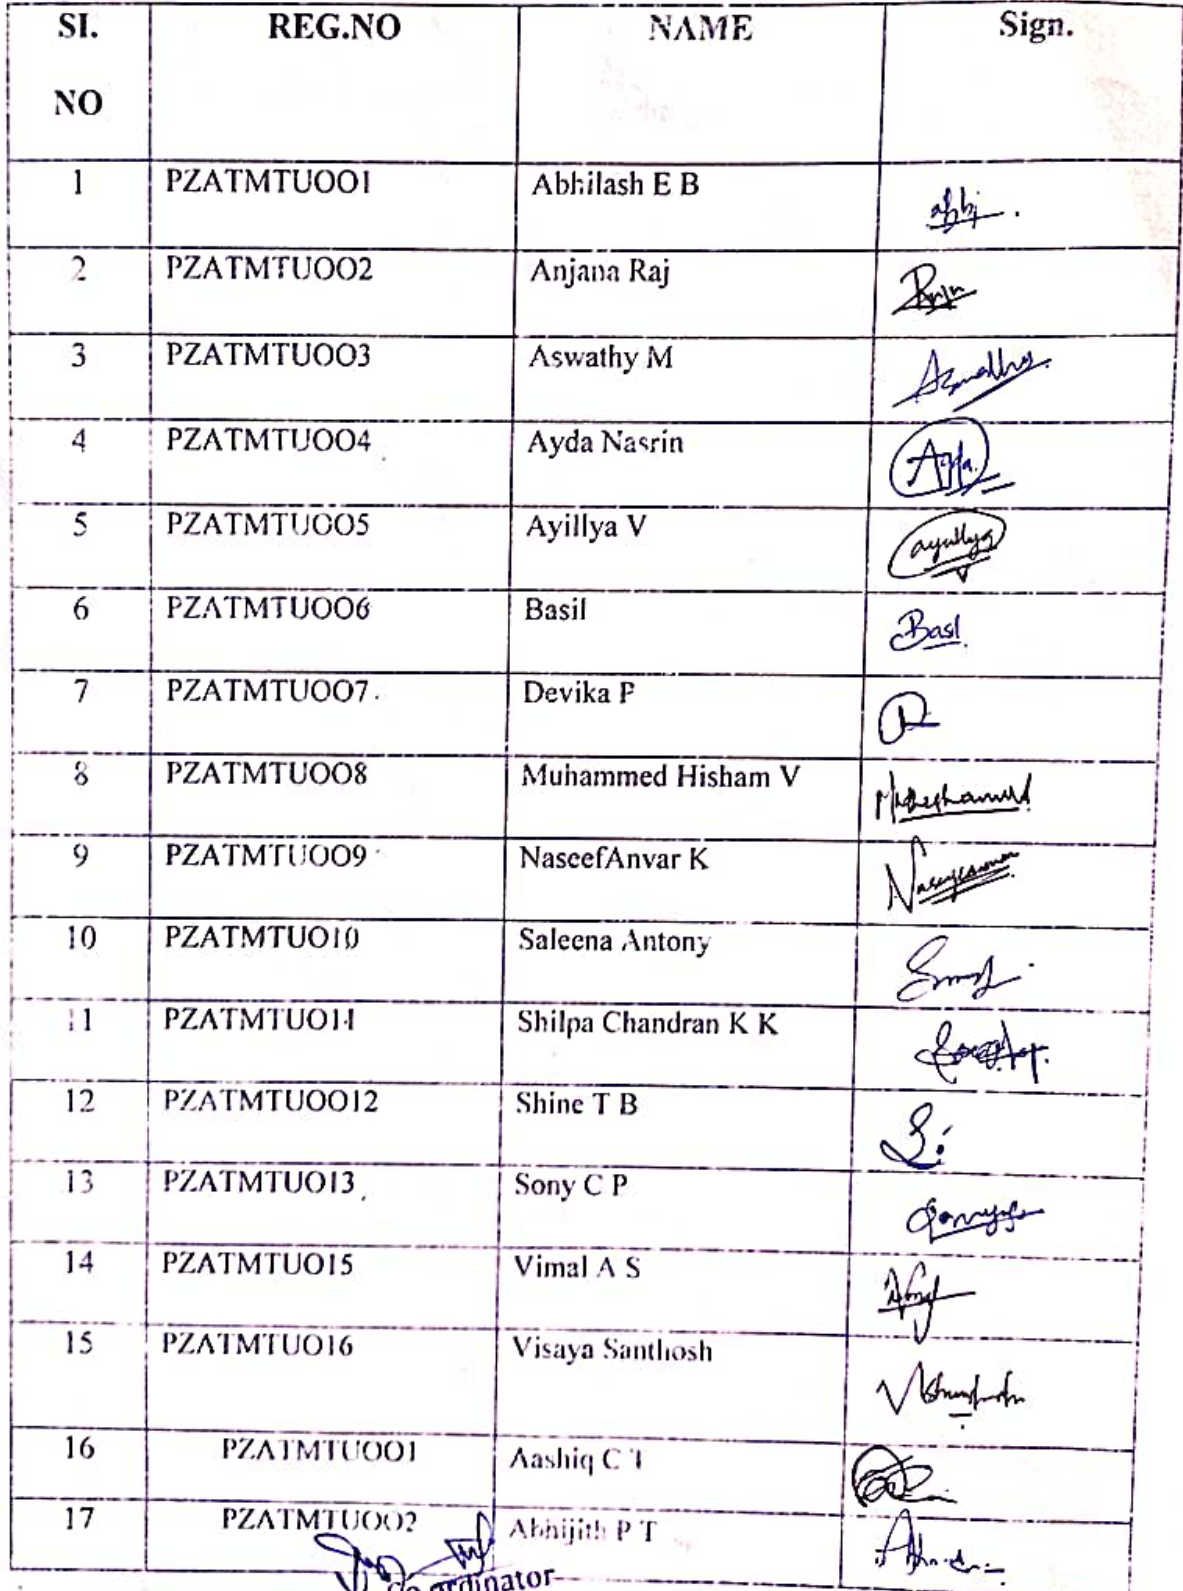 SI. NO REG.NO NAME Sign.
1 PZATMTUOO1 Abhilash E B abhi
2 PZATMTUOO2 Anjana Raj
3 PZATMTUOO3 Aswathy M Aswathy
4 PZATMTUOO4 Ayda Nasrin Ayda
5 PZATMTUOO5 Ayillya V ayillya
6 PZATMTUOO6 Basil Basil
7 PZATMTUOO7 Devika P
8 PZATMTUOO8 Muhammed Hisham V
9 PZATMTUOO9 NaseefAnvar K
10 PZATMTUO10 Saleena Antony
11 PZATMTUO11 Shilpa Chandran K K
12 PZATMTUOO12 Shine T B
13 PZATMTUO13 Sony C P
14 PZATMTUO15 Vimal A S
15 PZATMTUO16 Visaya Santhosh
16 PZATMTUOO1 Aashiq C T
17 PZATMTUOO2 Abhijith P T
Co-ordinator